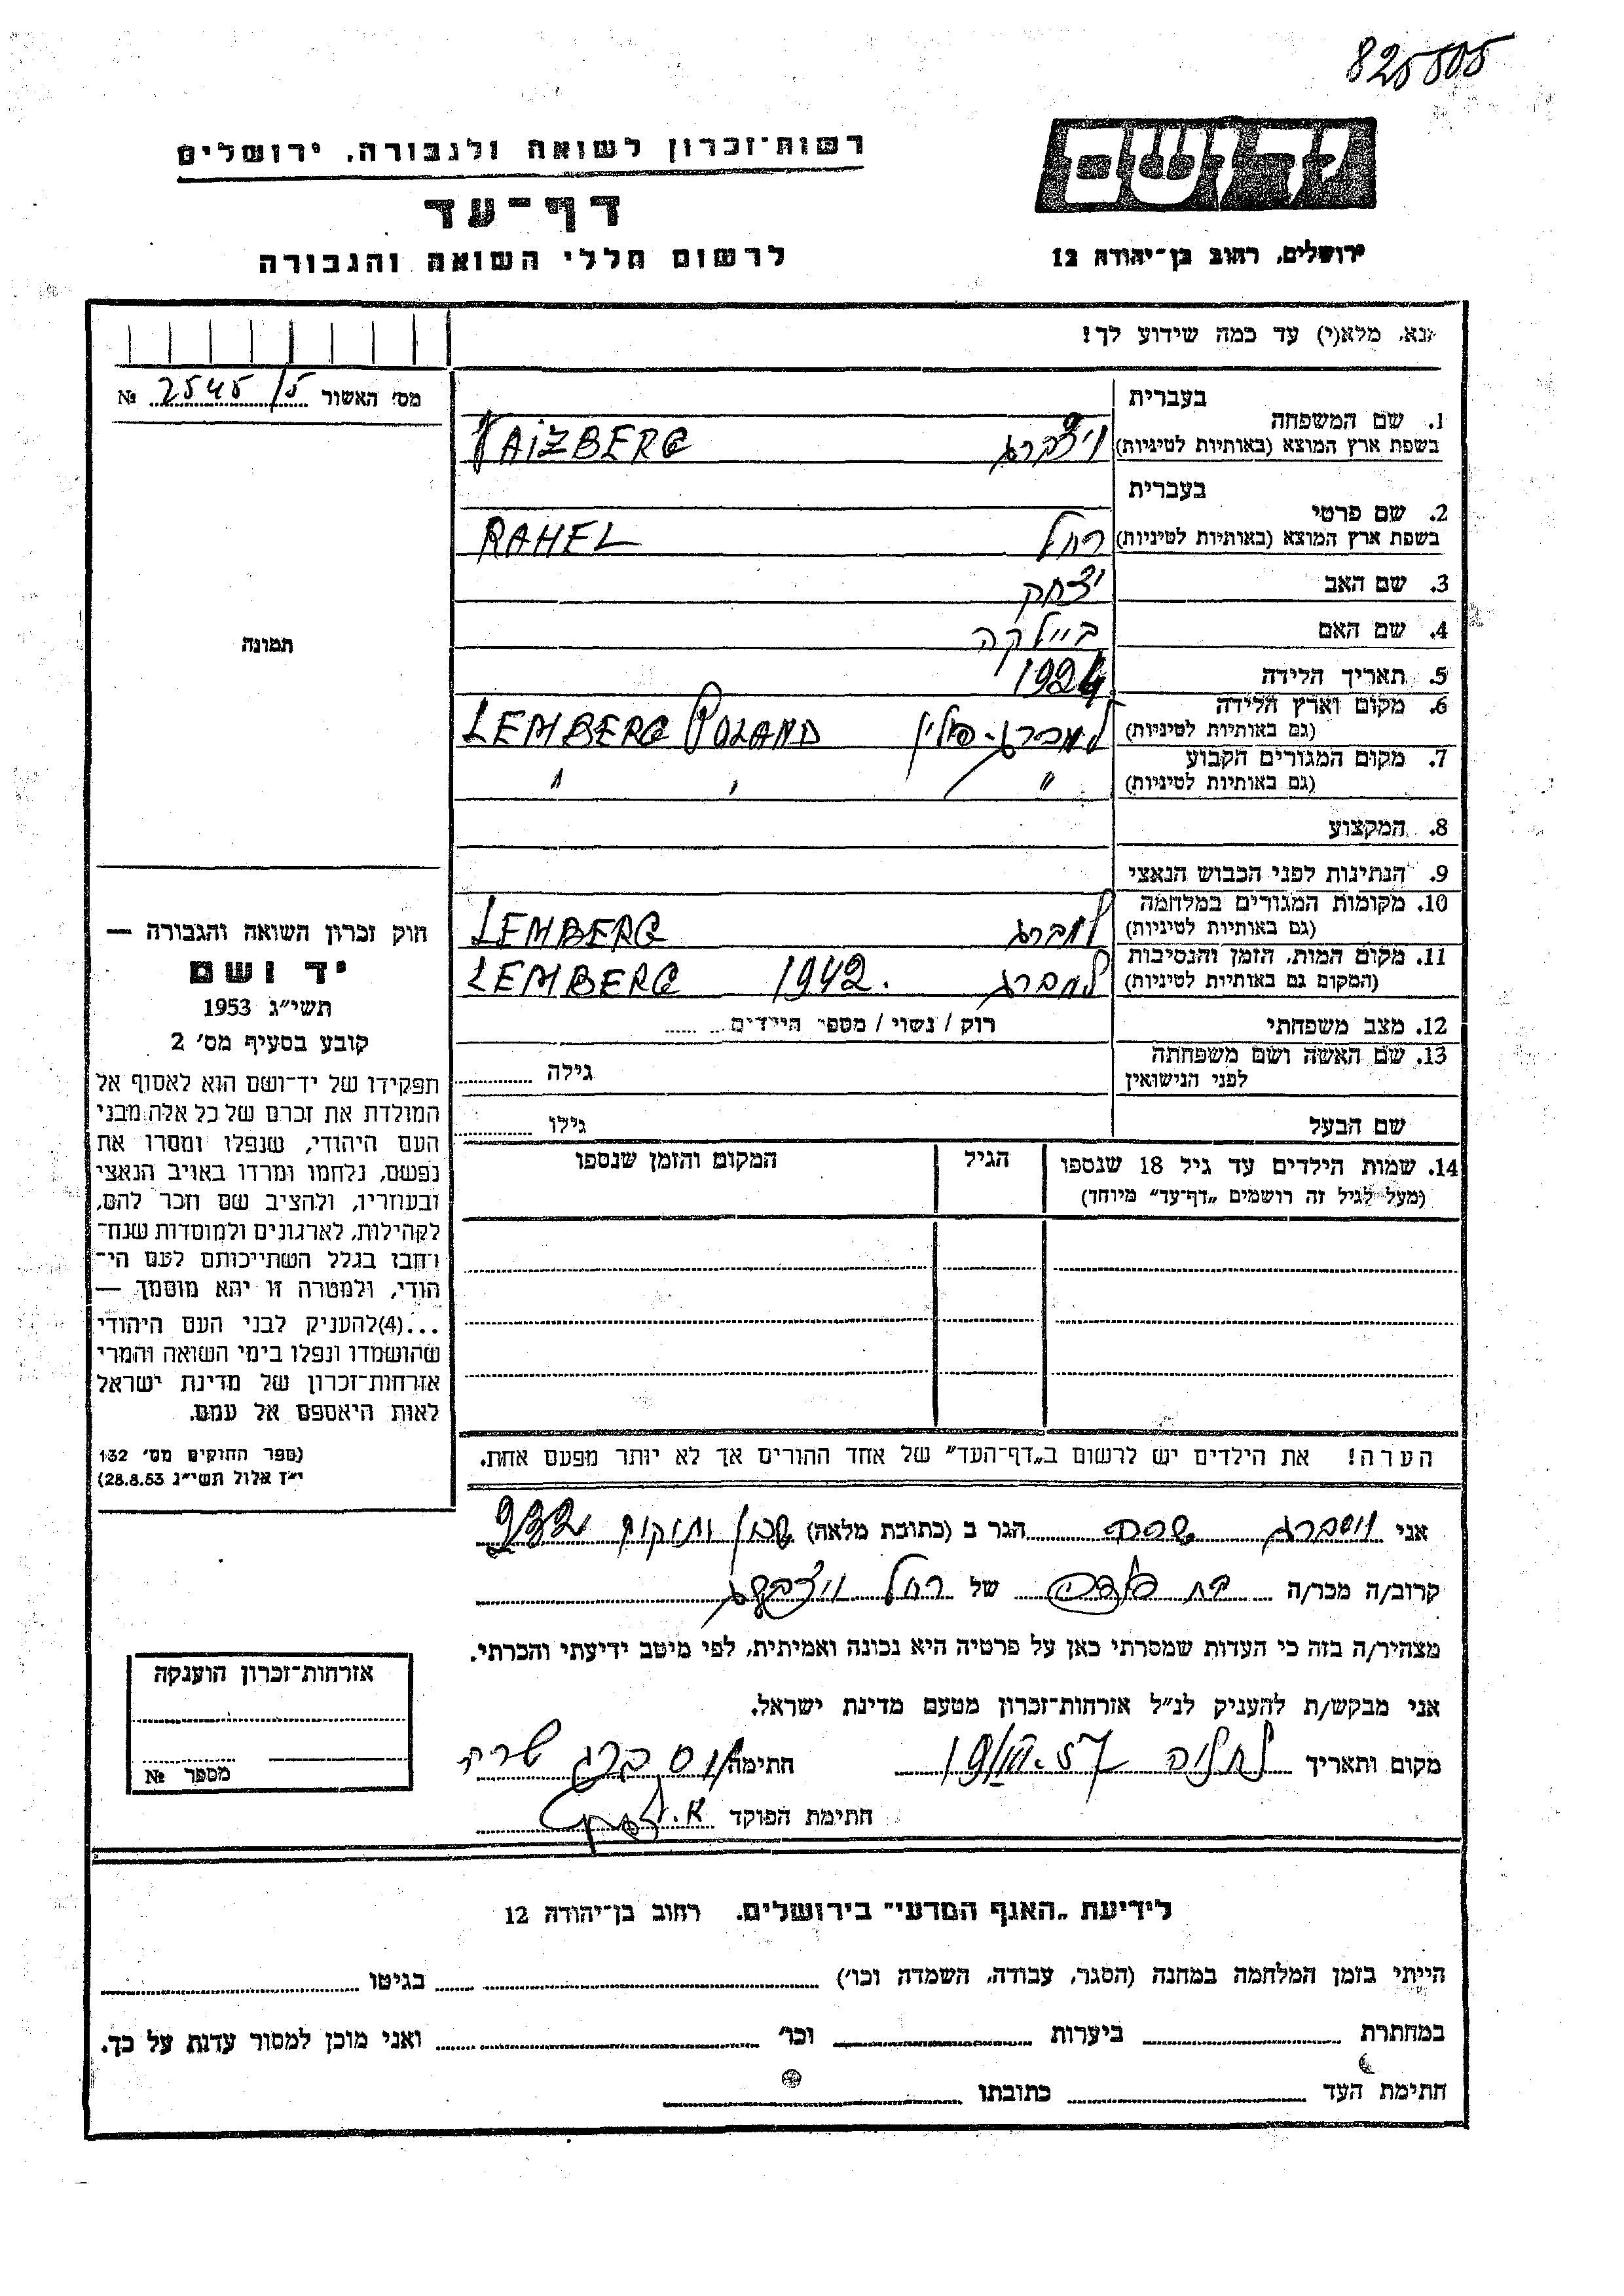 825505
רשות־זכרון לשואה ולגבורה, ירושלים
דף־עד
לרשום חללי השואה והגבורה
יד ושם
ירושלים, רחוב בן־יהודה 12
נא, מלא(י) עד כמה שידוע לך!
מס' האשור 2545/5 №
תמונה
חוק זכרון השואה והגבורה —
יד ושם
תשי״ג 1953
קובע בסעיף מס' 2
תפקידו של יד־ושם הוא לאסוף אל
המולדת את זכרם של כל אלה מבני
העם היהודי, שנפלו ומסרו את
נפשם, נלחמו ומרדו באויב הנאצי
ובעוזריו, ולהציב שם וזכר להם,
לקהילות, לארגונים ולמוסדות שנח־
רבו בגלל השתייכותם לעם הי־
הודי, ולמטרה זו יהא מוסמך —
...(4)להעניק לבני העם היהודי
שהושמדו ונפלו בימי השואה והמרי
אזרחות־זכרון של מדינת ישראל
לאות היאספם אל עמם.
(ספר החוקים מס' 132
י״ז אלול תשי״ג 28.8.53)
בעברית
1. שם המשפחה
בשפת ארץ המוצא (באותיות לטיניות) ויצברג VAIZBERG
בעברית
2. שם פרטי
בשפת ארץ המוצא (באותיות לטיניות) רחל RAHEL
3. שם האב יצחק
4. שם האם ביילקה
5. תאריך הלידה 1924
6. מקום וארץ הלידה
(גם באותיות לטיניות) למברג - פולין LEMBERG POLAND
7. מקום המגורים הקבוע
(גם באותיות לטיניות) " " "
8. המקצוע
9. הנתינות לפני הכבוש הנאצי
10. מקומות המגורים במלחמה
(גם באותיות לטיניות) למברג LEMBERG
11. מקום המות, הזמן והנסיבות
(המקום גם באותיות לטיניות) למברג 1942. LEMBERG
12. מצב משפחתי רוק / נשוי / מספר הילדים
13. שם האשה ושם משפחתה
לפני הנישואין גילה
שם הבעל גילו
14. שמות הילדים עד גיל 18 שנספו הגיל המקום והזמן שנספו
(מעל לגיל זה רושמים „דף־עד״ מיוחד)
הערה! את הילדים יש לרשום ב„דף־העד״ של אחד ההורים אך לא יותר מפעם אחת.
אני ויסברג שרה הגר ב (כתובת מלאה) שכון ותיקים
קרוב/ה מכר/ה בת דודה של רחל ויצברג
מצהיר/ה בזה כי העדות שמסרתי כאן על פרטיה היא נכונה ואמיתית, לפי מיטב ידיעתי והכרתי.
אני מבקש/ת להעניק לנ״ל אזרחות־זכרון מטעם מדינת ישראל.
מקום ותאריך חתימה ויסברג שרה
חתימת הפוקד
אזרחות־זכרון הוענקה
מספר №
לידיעת „האגף המדעי״ בירושלים, רחוב בן־יהודה 12
הייתי בזמן המלחמה במחנה (הסגר, עבודה, השמדה וכו') בגיטו
במחתרת ביערות וכו' ואני מוכן למסור עדות על כך.
חתימת העד כתובתו